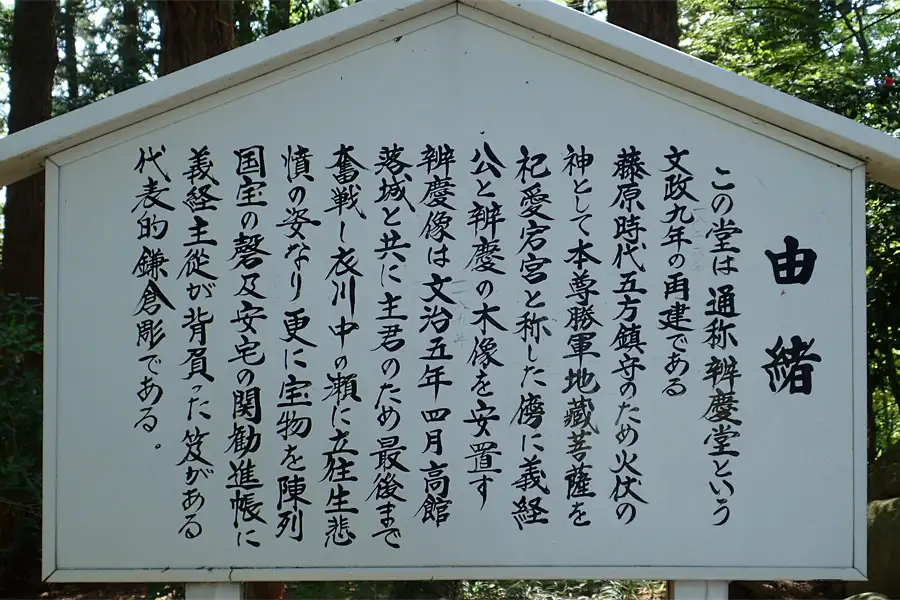 由緒
この堂は通称辨慶堂という
文政九年の再建である
藤原時代五方鎮守のため火伏の
神として本尊勝軍地蔵菩薩を
祀愛宕宮と称した傍に義経
公と辨慶の木像を安置す
辨慶像は文治五年四月高館
落城と共に主君のため最後まで
奮戦し衣川中の瀬に立往生悲
憤の姿なり更に宝物を陳列
国宝の磬及安宅の関勧進帳に
義経主従が背負った笈がある
代表的鎌倉彫である。